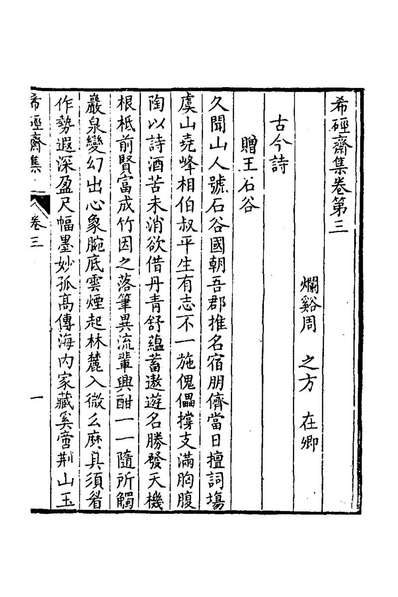 希硜齋集卷第三
爛谿周 之方 在卿
古今詩
贈王石谷
久聞山人號石谷國朝吾郡推名宿朋儕當日擅詞塲
虞山堯峰相伯叔平生有志不一施傀儡撐支滿胸腹
陶以詩酒苦未消欲借丹青舒蘊蓄遨遊名勝發天機
根柢前賢富成竹因之落筆異流輩興酣一一隨所觸
巖泉變幻出心象腕底雲煙起林麓入微么麻真須省
作勢遐深盈尺幅墨妙孤高傳海內家藏奚啻荆山玉
希硜齋集 卷三 一